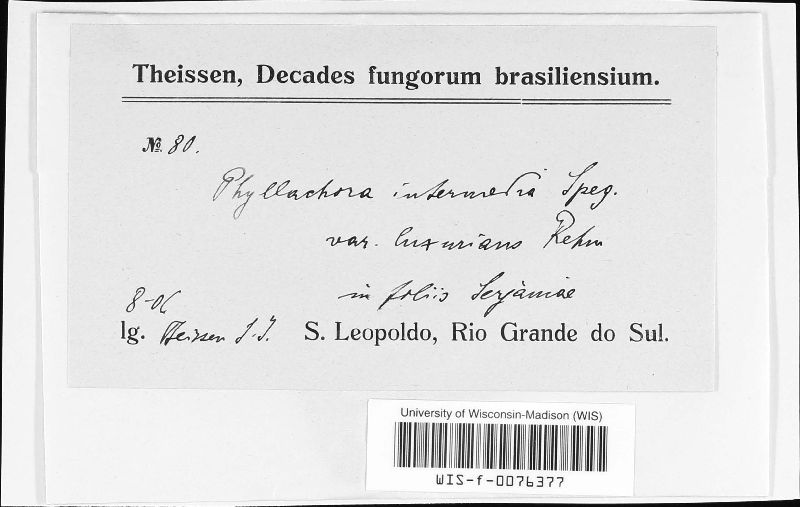 Theissen, Decades fungorum brasiliensium.
№ 80.
Phyllachora intermedia Speg.
var. luxurians Rehm
in foliis Serjaniae
8-06
lg. Theissen S.J. S. Leopoldo, Rio Grande do Sul.
University of Wisconsin-Madison (WIS)
WIS-f-0076377